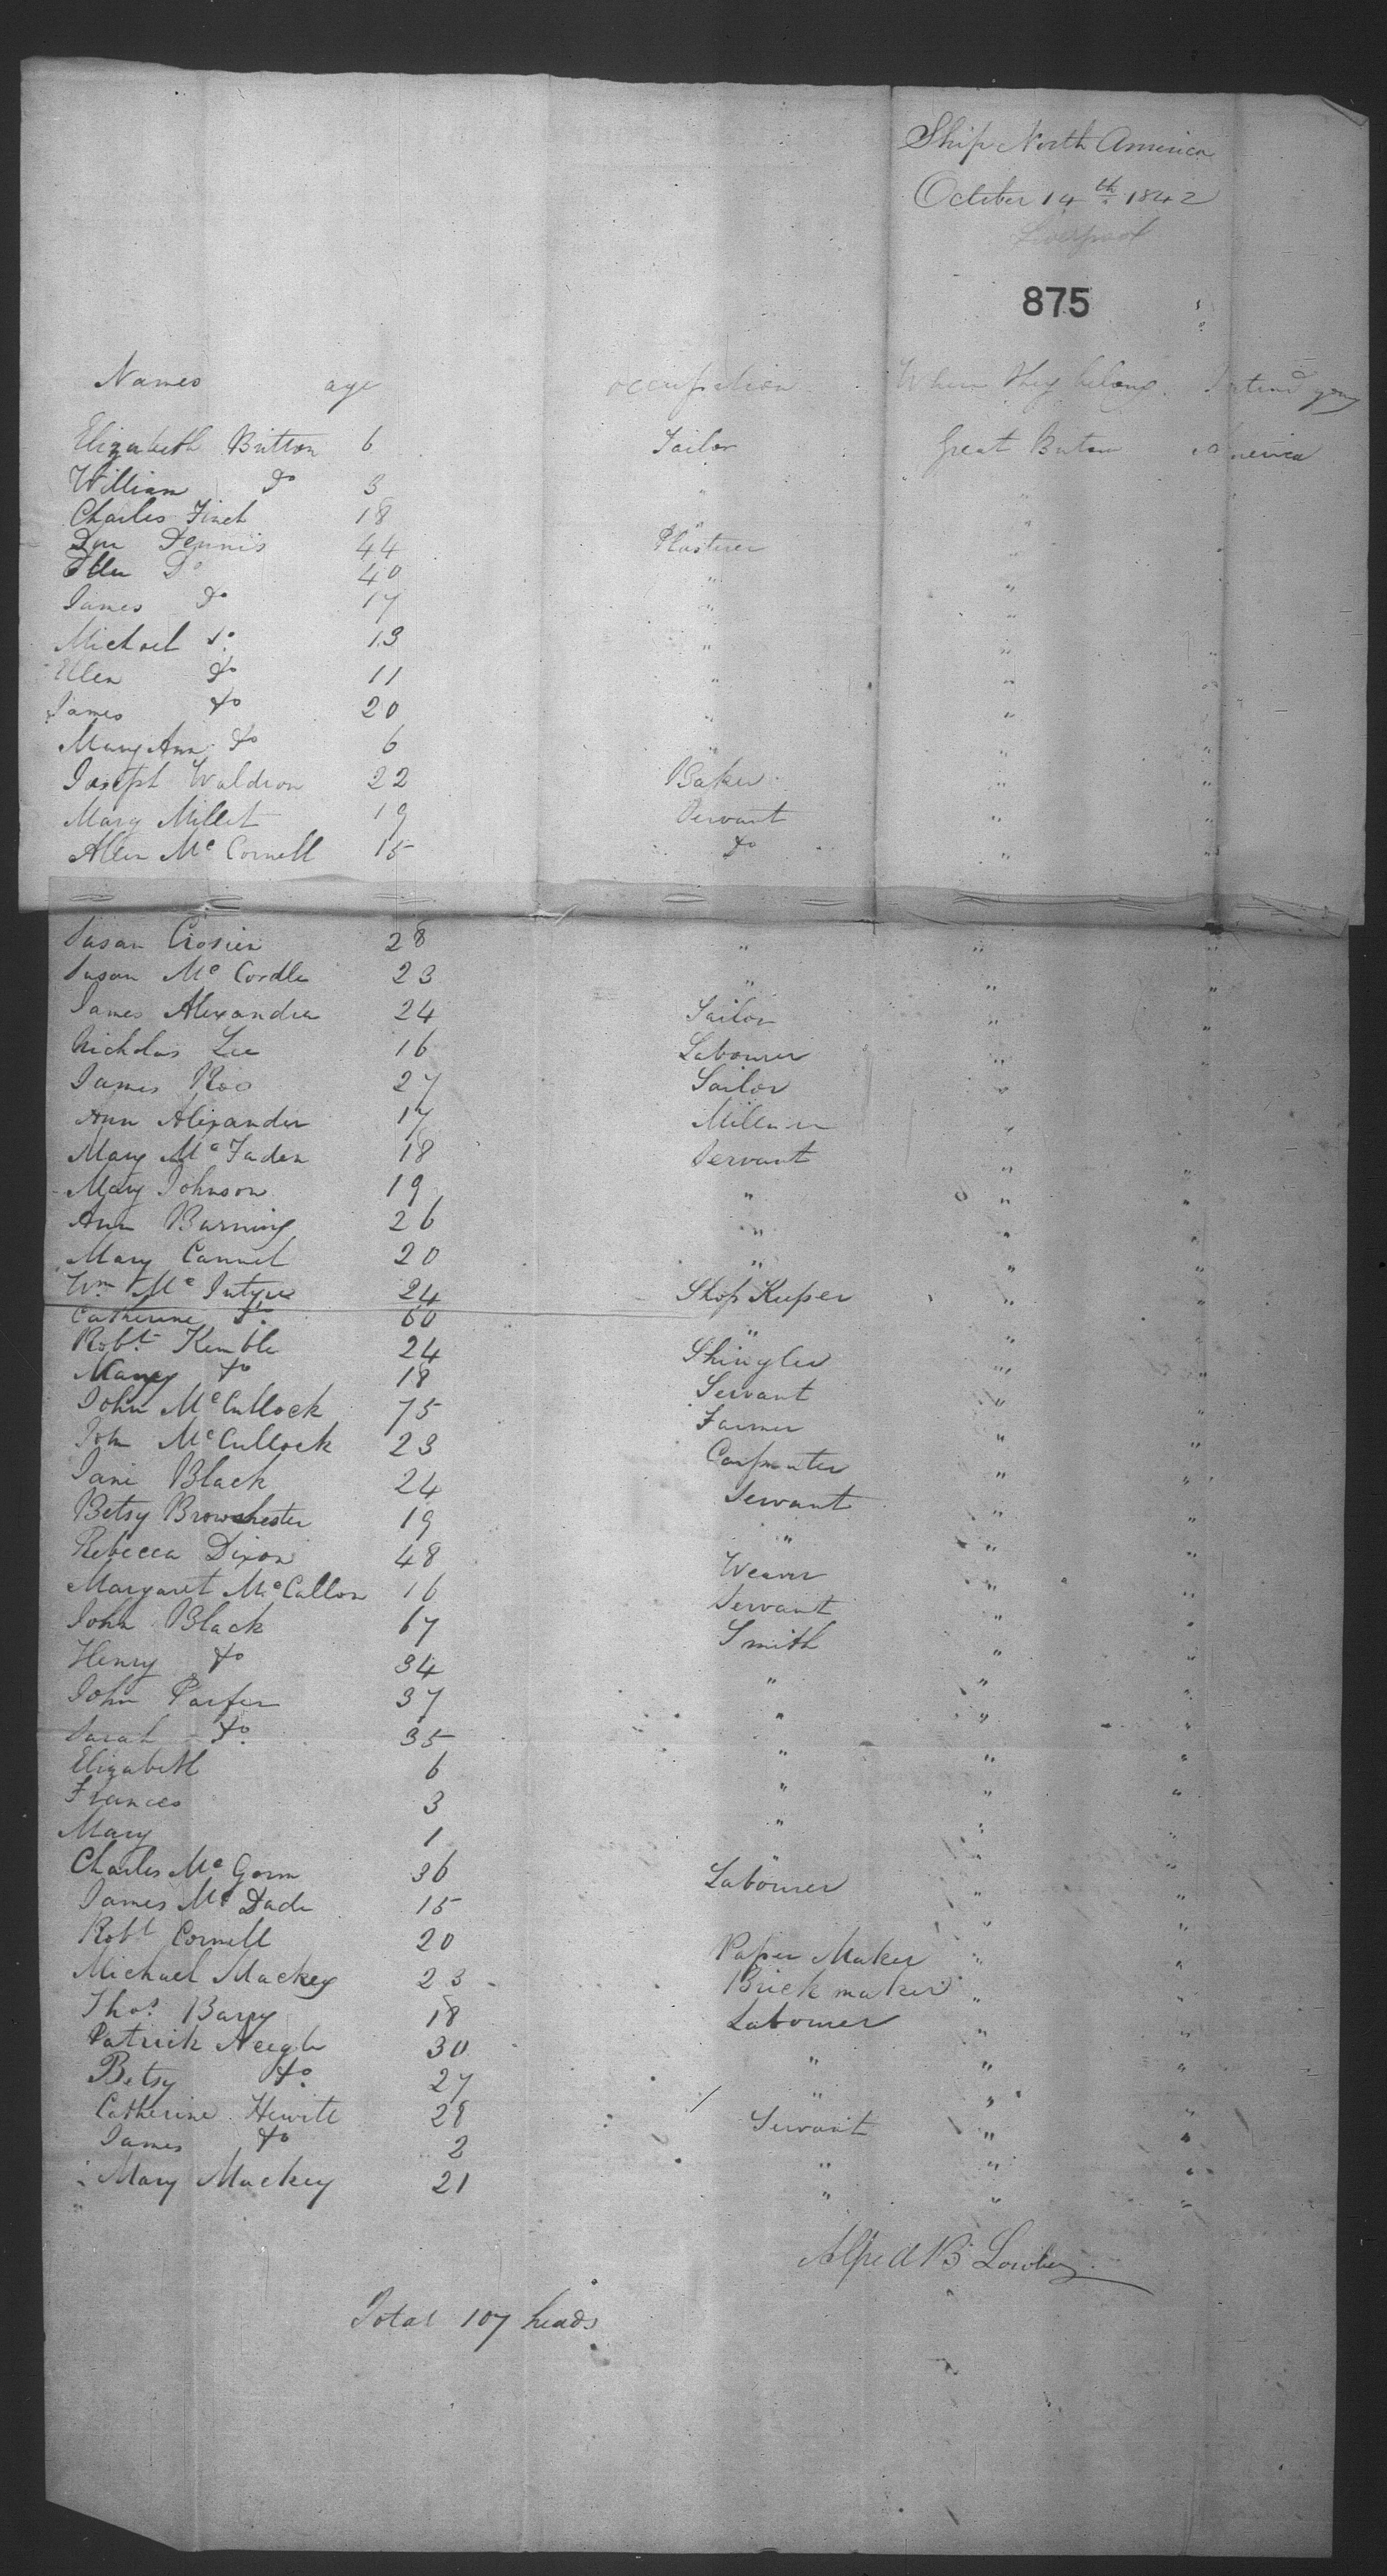 Ship North America
October 14th 1842
Liverpool
875
Names age occupation Where they belong. Intend going
Elizabeth Britton 6 Tailor Great Britain America
William Do 3 " " "
Charles Finch 18 " "
Dennis 44 Plasterer " "
Ellen Do 40 " "
James Do 17 " "
Michael Do 13 " " "
Ellen Do 11 " " "
James Do 20 " "
Mary Ann Do 6 " " "
Joseph Waldron 22 Baker " "
Mary Millet 19 Servant " "
Allen Mc Cornell 15 Do " "
Susan Crosier 28 " " "
Susan Mc Cordle 23 " " "
James Alexander 24 Tailor " "
Nicholas Lee 16 Labourer " "
James Roo 27 Sailor "
Ann Alexander 17 "
Mary Mc Faden 18 Servant " "
Mary Johnson 19 " " "
Ann Burning 26 " " "
Mary Cannel 20 " " "
Wm Mc Intyre 24 Shop Keeper " "
Catherine Do 60 " " "
Robt Kemble 24 Shingler " "
Mary Do 18 Servant " "
John McCullock 75 Farmer " "
John McCullock 23 Carpenter " "
Jane Black 24 Servant " "
Betsy Browchester 19 " " "
Rebecca Dixon 48 Weaver " "
Margaret McCallon 16 Servant " "
John Black 67 Smith " "
Henry Do 34 " " "
John Parfer 37 " " "
Sarah Do 35 " " "
Elizabeth 6 " " "
Frances 3 " " "
Mary 1 " " "
Charles Mc Gorm 36 Labourer " "
James Mc Dade 15 " "
Robt Cornell 20 Paper Maker " "
Michael Mackey 23 Brick maker " "
Thos Barry 18 Labourer " "
Patrick Neagle 30 " " "
Betsy Do 27 " " "
Catherine Hewitt 28 Servant " "
James Do 2 " " "
Mary Mackey 21 " " "
Alfred B Lowber
Total 107 heads